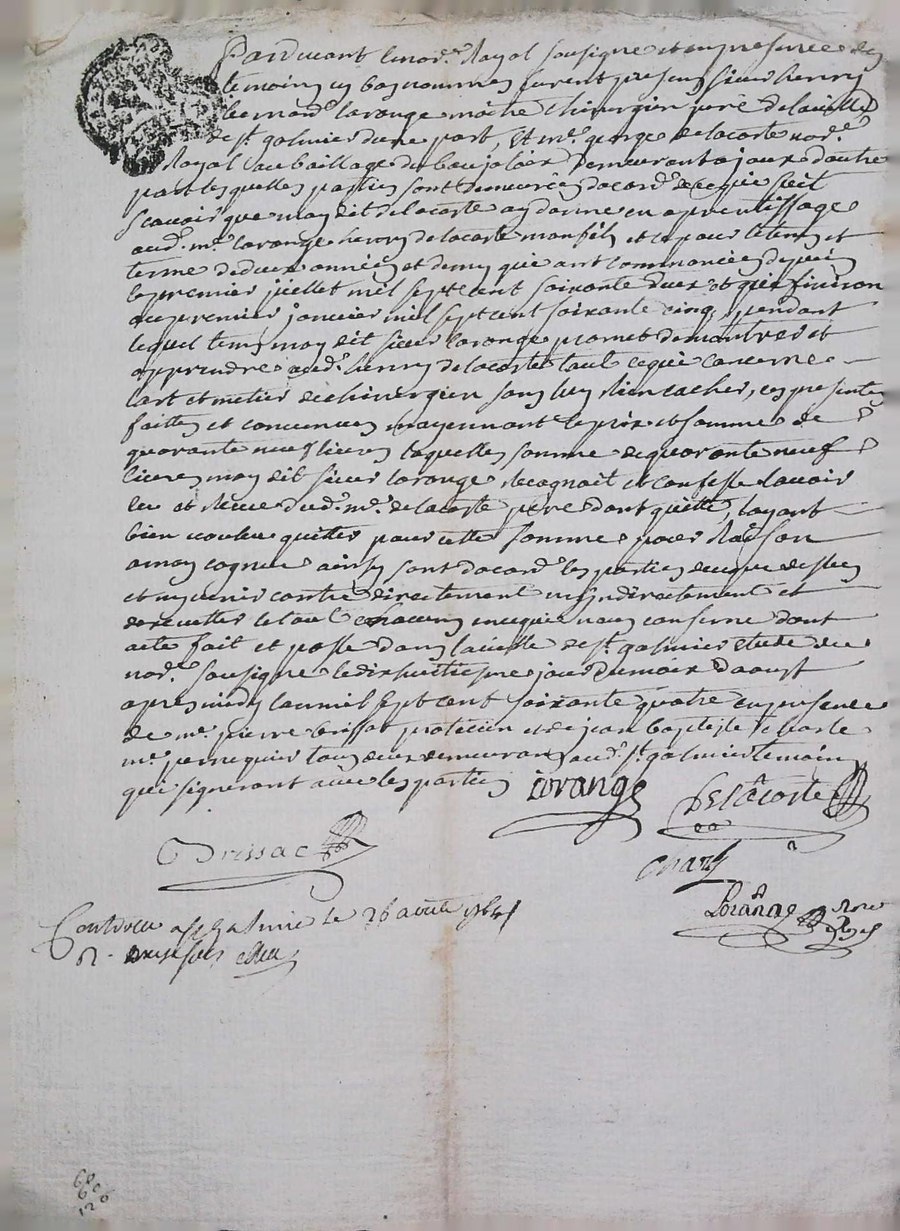 Pardevant le nore. Royal sousigne et en presence des
temoins cy bas nommes furent presens sieur henry
bernard larange maitre chirurgien juré de la ville
de st. galmier dune part, Et me. george delacoste nore.
Royal au bailliage du baujolais demeurant a jaux dautre
part lesquelles parties sont demeurées dacord de ce qui suit
scavoir que moy dit delacoste ay donné en aprentissage
aud. me. larange henry delacoste mon fils et ce pour le tems et
terme de deux années et demy qui ont commancées depuis
le premier juillet mil sept cent soixante deux et qui finiron
au premier janvier mil sept cent soixante cinq, pendant
lequel tems moy dit sieur larange promet de montrer et
apprendre aud. henry delacoste tout ce qui concerne
lart et metier de chirurgien sans luy rien cacher, ces presentes
faittes et convenues moyennant le prix et somme de
quarante neuf livres laquelles somme de quarante neuf
livres moy dit sieur larange recognoit et confesse lavoir
eu et receue dud. me. delacoste pere dont quitte, layant
bien voulu quitter pour cette somme pour Raison
a moy cognue ainsy sont dacord les parties
et ny venir contre directement ny indirectement et
dexecutter le tout chacun en ce qui nous conserne dont
acte fait et passé dans la ville de st. galmier etude du
nore. sousigne le dix huitiesme jour du mois daoust
apres midy lan mil sept cent soixante quatre en presence
de me. pierre brissat praticien et de jean baptiste charle
me. perruquier tous deux demeurans aud. st. galmier temoins
qui signeront avec les parties larange Delacoste
Brissac
charle
Lorange nore Royal
Controlé a st Galmier le 26 aoust 1764
60
60
120